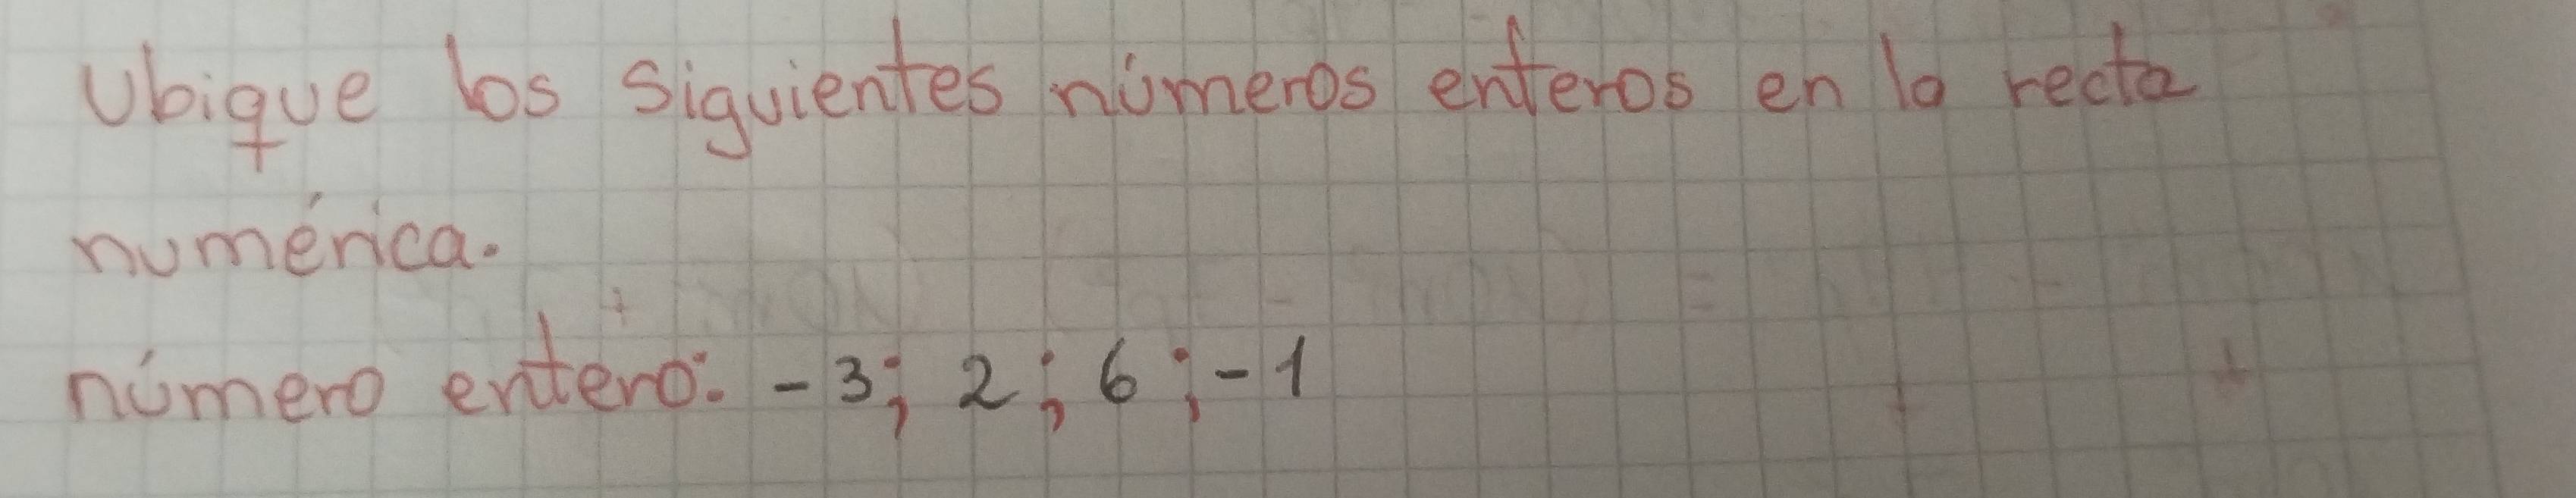 Ubique los siguientes números enteros en la recta
numérica.
número entero: -3; 2; 6; -1